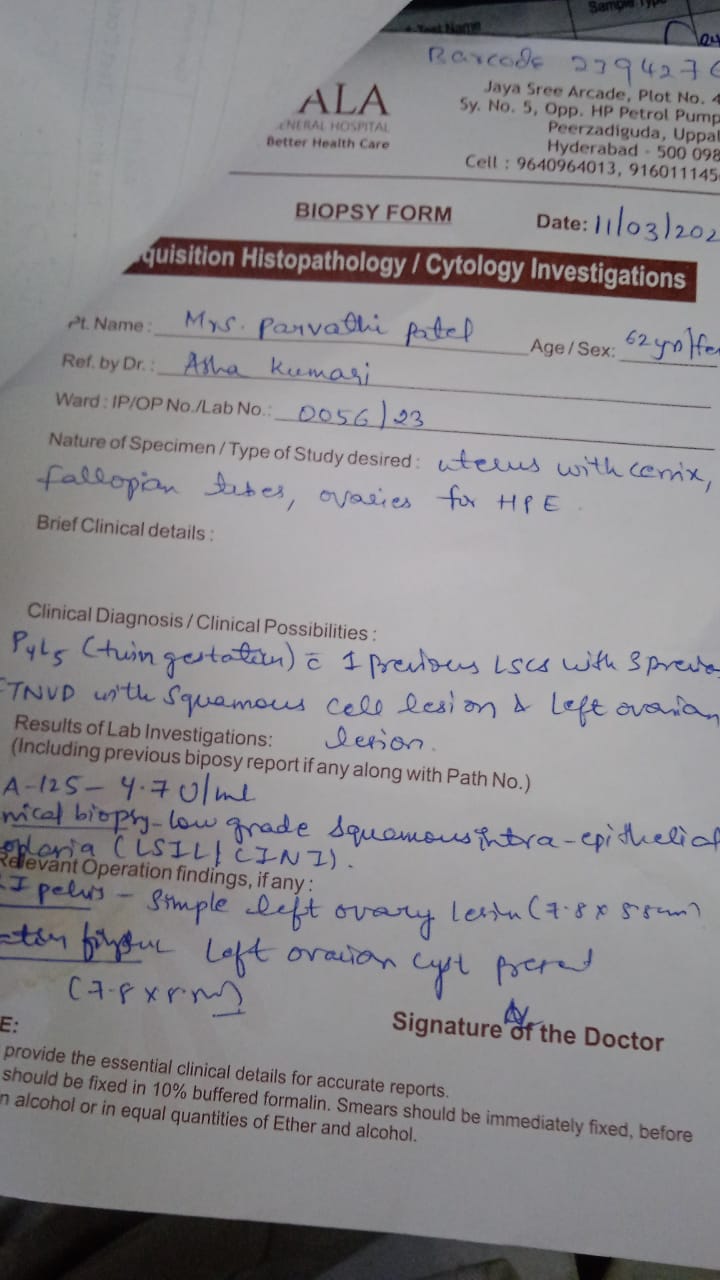 Sample Type
Test Name
Barcode 2394276
ALA
ENERAL HOSPITAL
Better Health Care
Jaya Sree Arcade, Plot No. 4
Sy. No. 5, Opp. HP Petrol Pump
Peerzadiguda, Uppal
Hyderabad - 500 098
Cell : 9640964013, 916011145
BIOPSY FORM
Date: 11/03/202
quisition Histopathology / Cytology Investigations
Pt. Name : Mrs. Parvathi Patel
Age / Sex: 62 yrs/fe
Ref. by Dr. : Asha Kumari
Ward : IP/OP No./Lab No.: 0056/23
Nature of Specimen / Type of Study desired : uterus with cervix,
fallopian tubes, ovaries for HPE.
Brief Clinical details :
Clinical Diagnosis / Clinical Possibilities :
P4L5 (twin gestation) c̄ 1 previous LSCS with 3 previo
FTNVD with Squamous cell lesion & left ovarian
lesion.
Results of Lab Investigations:
(Including previous biposy report if any along with Path No.)
A-125 - 4.7 U/ml
nical biopsy - low grade squamous intra-epithelial
oplasia (LSIL/CIN I).
Relevant Operation findings, if any :
I pelvis - Simple left ovary lesion (7.8 x 5.8cm)
left ovarian cyst present
Signature of the Doctor
E:
provide the essential clinical details for accurate reports.
should be fixed in 10% buffered formalin. Smears should be immediately fixed, before
n alcohol or in equal quantities of Ether and alcohol.